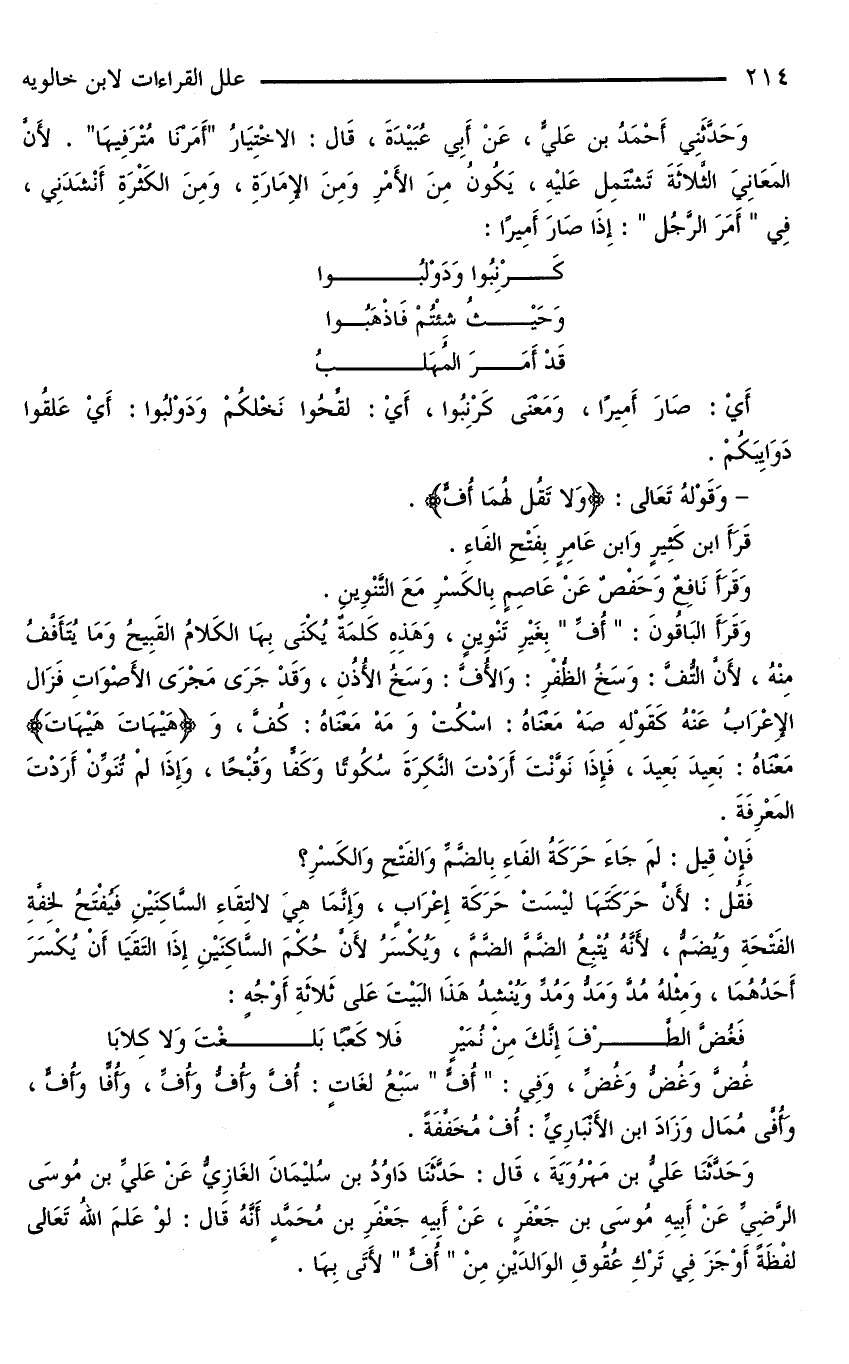 ٢١٤ علل القراءات لابن خالويه
وَحَدَّثَنِي أَحْمَدُ بن عَليٍّ ، عَنْ أَبِي عُبَيْدَةَ ، قَال : الاخْتِيَارُ "أَمَرْنَا مُتْرَفِيهَا" . لأَنَّ
المَعَانِيَ الثَّلاثَةَ تَشْتَمِل عَليْهِ ، يَكُونُ مِنَ الأَمْرِ وَمِنَ الإِمَارَةِ ، وَمِنَ الكَثْرَةِ أَنْشَدَنِي ،
فِي " أَمَرَ الرَّجُل " : إِذَا صَارَ أَمِيرًا :
كَــــرْنِبُوا وَدَوْلبُــــــــوا
وَحَيْــــــثُ شِئْتُمْ فَاذْهَبُــــوا
قَدْ أَمَــــرَ المُهَلـــــــــبُ
أَيْ : صَارَ أَمِيرًا ، وَمَعْنَى كَرْنِبُوا ، أَيْ : لقِّحُوا نَخْلكُمْ وَدَوْلبُوا : أَيْ عَلقُوا
دَوَابِبَكُمْ .
– وَقَوْلهُ تَعَالى : ﴿وَلا تَقُل لهُمَا أُفٍّ﴾ .
قَرَأَ ابن كَثِيرٍ وَابن عَامِرٍ بِفَتْحِ الفَاءِ .
وَقَرَأَ نَافِعٌ وَحَفْصٌ عَنْ عَاصِمٍ بِالكَسْرِ مَعَ التَّنْوِينِ .
وَقَرَأَ البَاقُونَ : " أُفِّ " بِغَيْرِ تَنْوِينٍ ، وَهَذِهِ كَلمَةٌ يُكْنَى بِهَا الكَلامُ القَبِيحُ وَمَا يُتَأَفَّفُ
مِنْهُ ، لأَنَّ التُّفَّ : وَسَخُ الظُّفْرِ : وَالأُفَّ : وَسَخُ الأُذُنِ ، وَقَدْ جَرَى مَجْرَى الأَصْوَاتِ فَزَال
الإِعْرَابُ عَنْهُ كَقَوْلهِ صَهْ مَعْنَاهُ : اسْكُتْ وَ مَهْ مَعْنَاهُ : كُفَّ ، وَ ﴿هَيْهَاتَ هَيْهَاتَ﴾
مَعْنَاهُ : بَعِيدَ بَعِيدَ ، فَإِذَا نَوَّنْتَ أَرَدْتَ النَّكِرَةَ سُكُوتًا وَكَفًّا وَقُبْحًا ، وَإِذَا لمْ تُنَوِّنْ أَرَدْتَ
المَعْرِفَةَ .
فَإِنْ قِيل : لمَ جَاءَ حَرَكَةُ الفَاءِ بِالضَّمِّ وَالفَتْحِ وَالكَسْرِ؟
فَقُل : لأَنَّ حَرَكَتَهَا ليْسَتْ حَرَكَة إِعْرَابٍ ، وَإِنَّمَا هِيَ لالتِقَاءِ السَّاكِنَيْنِ فَيُفْتَحُ لخِفَّةِ
الفَتْحَةِ وَيُضَمُّ ، لأَنَّهُ يُتْبِعُ الضَّمَّ الضَّمَّ ، وَيُكْسَرُ لأَنَّ حُكْمَ السَّاكِنَيْنِ إِذَا التَقَيَا أَنْ يُكْسَرَ
أَحَدُهُمَا ، وَمِثْلهُ مُدَّ وَمَدُّ وَمُدِّ وَيُنْشِدُ هَذَا البَيْتَ عَلى ثَلاثَةِ أَوْجُهٍ :
فَغُضَّ الطَّـــــــرْفَ إِنَّكَ مِنْ نُمَيْرٍ فَلا كَعْبًا بَلــــــــغْتَ وَلا كِلابَا
غُضَّ وَغُضُّ وَغُضِّ ، وَفِي : " أُفٍّ " سَبْعُ لغَاتٍ : أُفَّ وَأُفُّ وَأُفِّ ، وَأُفًّا وَأُفٌّ ،
وَأُفَّى مُمَال وَزَادَ ابن الأَنْبَارِيِّ : أُفْ مُخَفَّفَةً .
وَحَدَّثَنَا عَليُّ بن مَهْرُوَيَةَ ، قَال : حَدَّثَنَا دَاوُدُ بن سُليْمَانَ الغَازِيُّ عَنْ عَليِّ بن مُوسَى
الرَّضِيِّ عَنْ أَبِيهِ مُوسَى بن جَعْفَرٍ ، عَنْ أَبِيهِ جَعْفَرِ بن مُحَمَّدٍ أَنَّهُ قَال : لوْ عَلمَ اللهُ تَعَالى
لفْظَةً أَوْجَزَ فِي تَرْكِ عُقُوقِ الوَالدَيْنِ مِنْ " أُفٍّ " لأَتَى بِهَا .